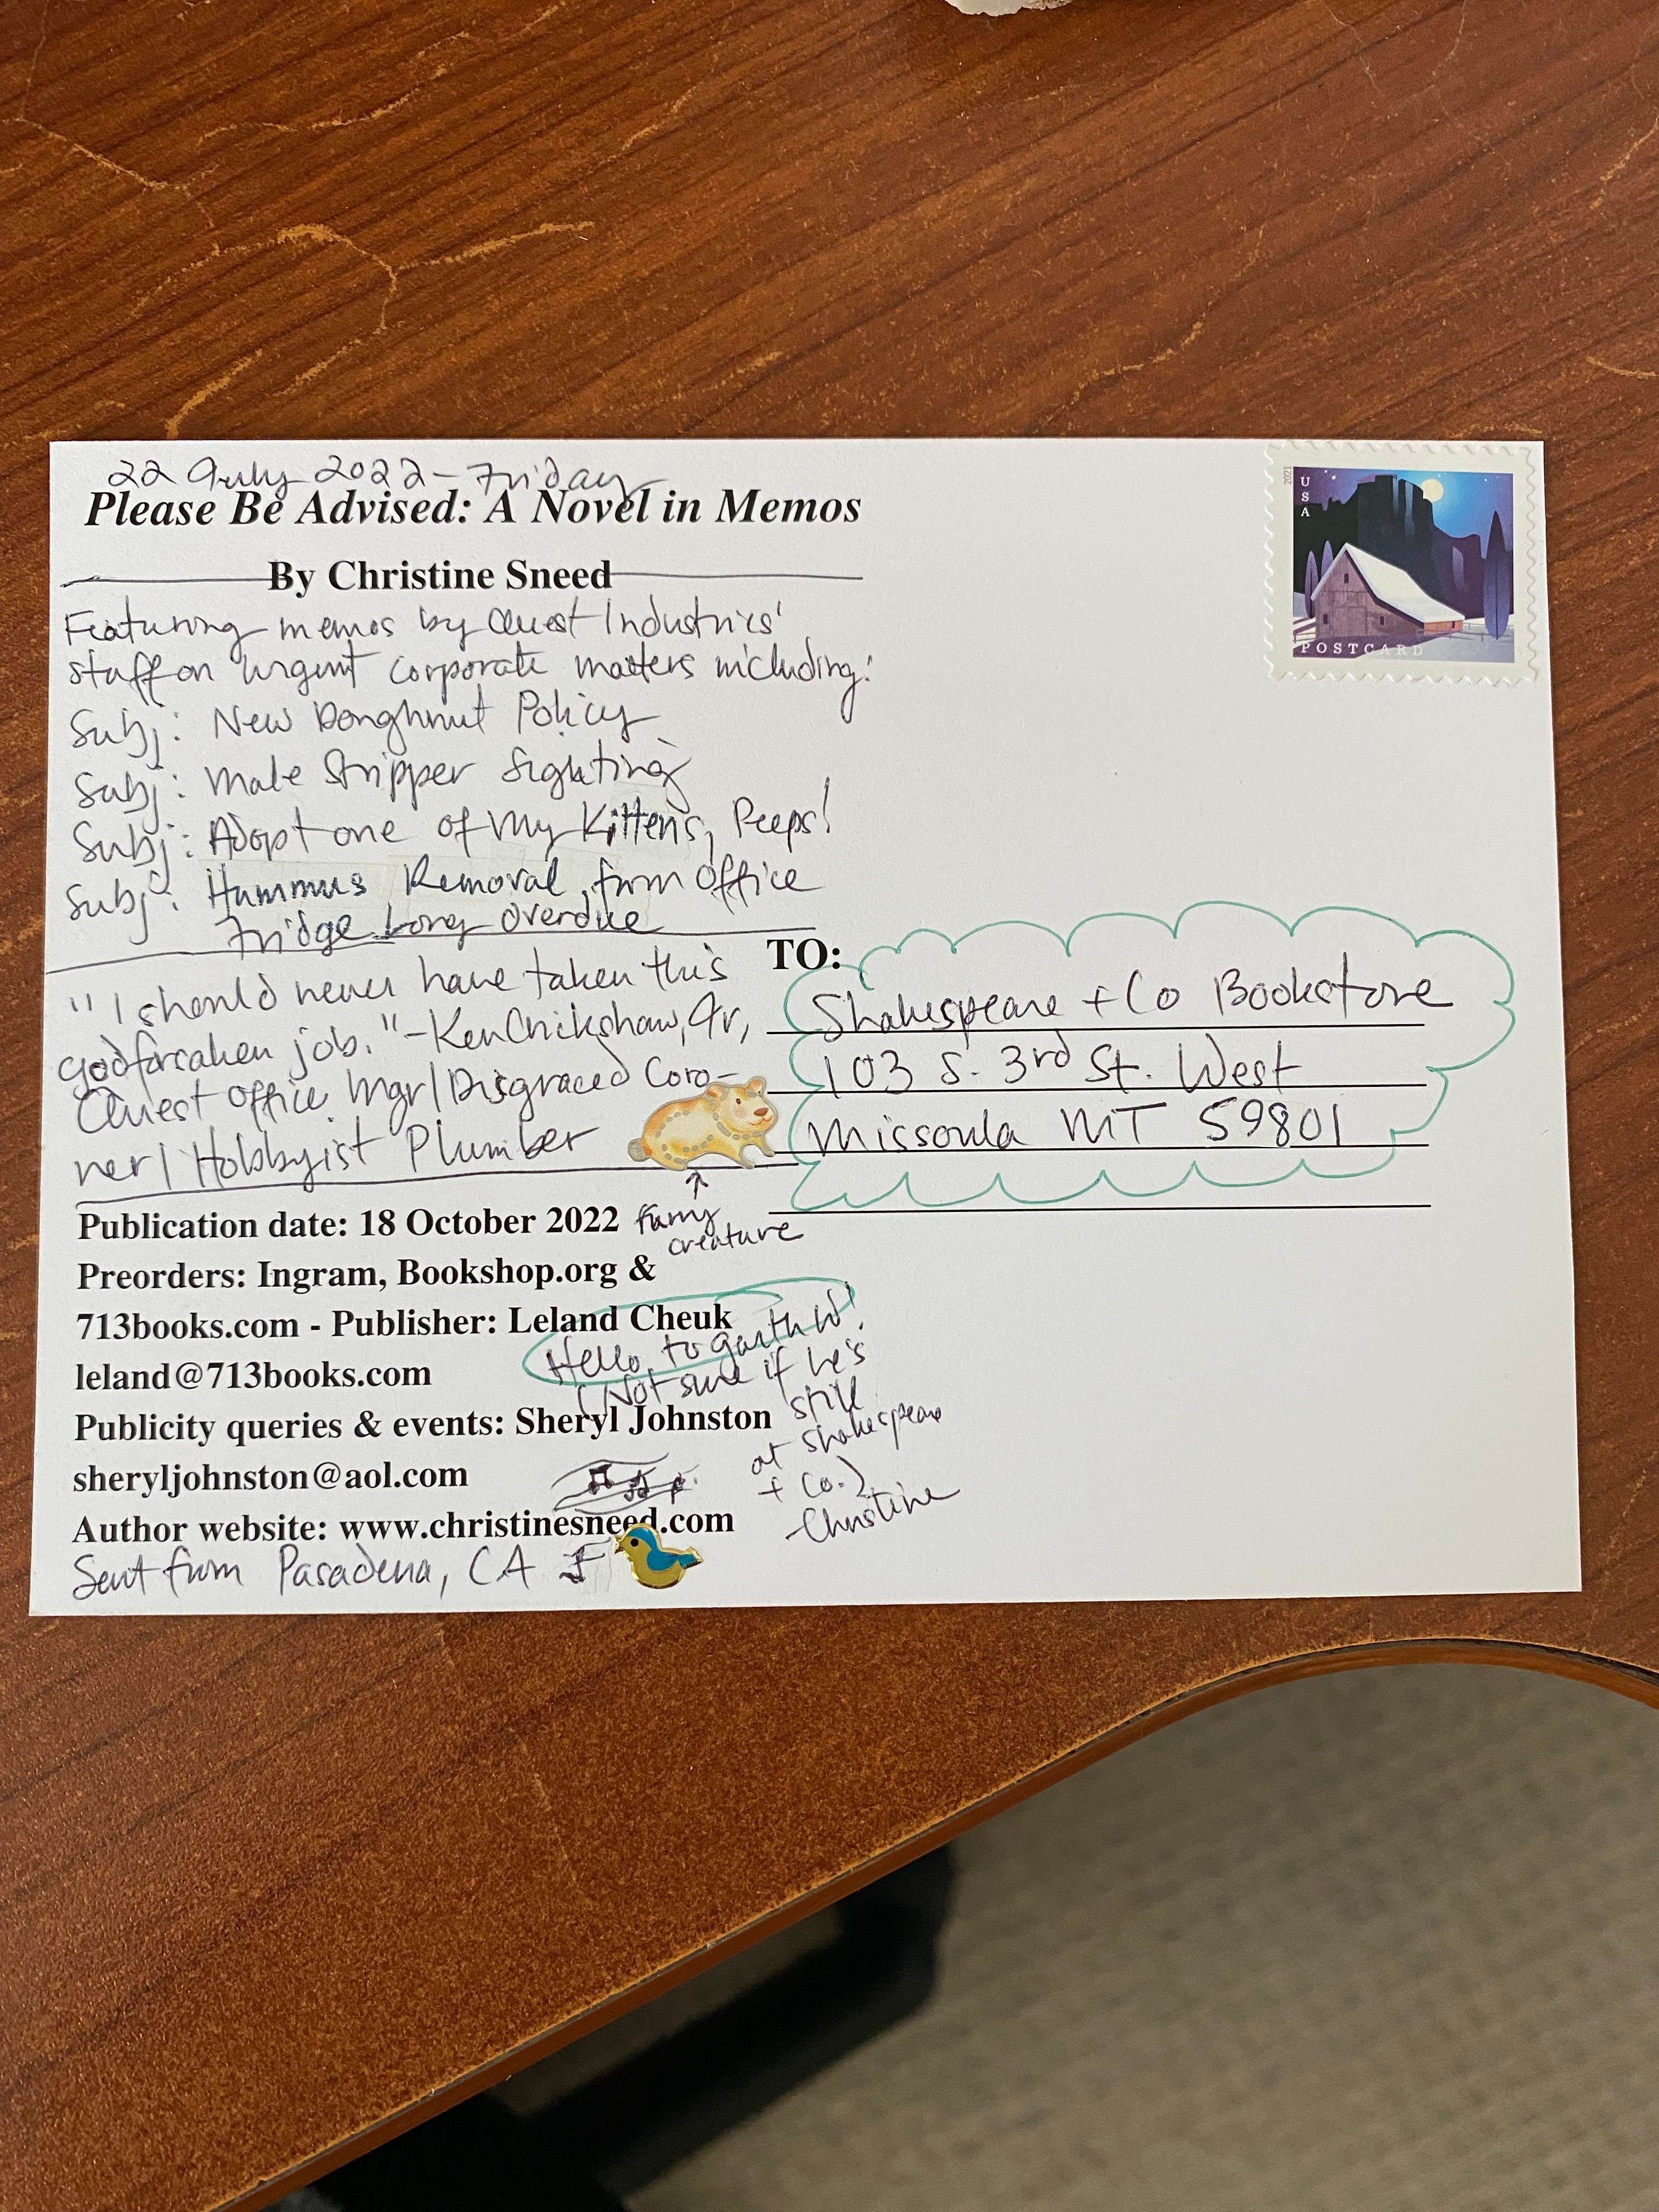 22 July 2022 - Friday
Please Be Advised: A Novel in Memos
By Christine Sneed
Featuring memos by Quest Industries'
staff on urgent corporate matters including:
Subj: New Doughnut Policy
Subj: Male Stripper Sighting
Subj: Adopt one of My Kittens, Peeps!
Subj: Hummus Removal from Office
Fridge Long Overdue
"I should never have taken this
godforsaken job." - Ken Crickshaw, Jr,
Quest Office Mgr/Disgraced Coro-
ner/Hobbyist Plumber
Furry
creature
Publication date: 18 October 2022
Preorders: Ingram, Bookshop.org &
713books.com - Publisher: Leland Cheuk
leland@713books.com
Publicity queries & events: Sheryl Johnston
sheryljohnston@aol.com
Author website: www.christinesneed.com
Sent from Pasadena, CA
Hello to Garth W!
(Not sure if he's
still
at Shakespeare
+ Co.)
-Christine
2021
USA
POSTCARD
TO:
Shakespeare + Co Bookstore
103 S. 3rd St. West
Missoula MT 59801